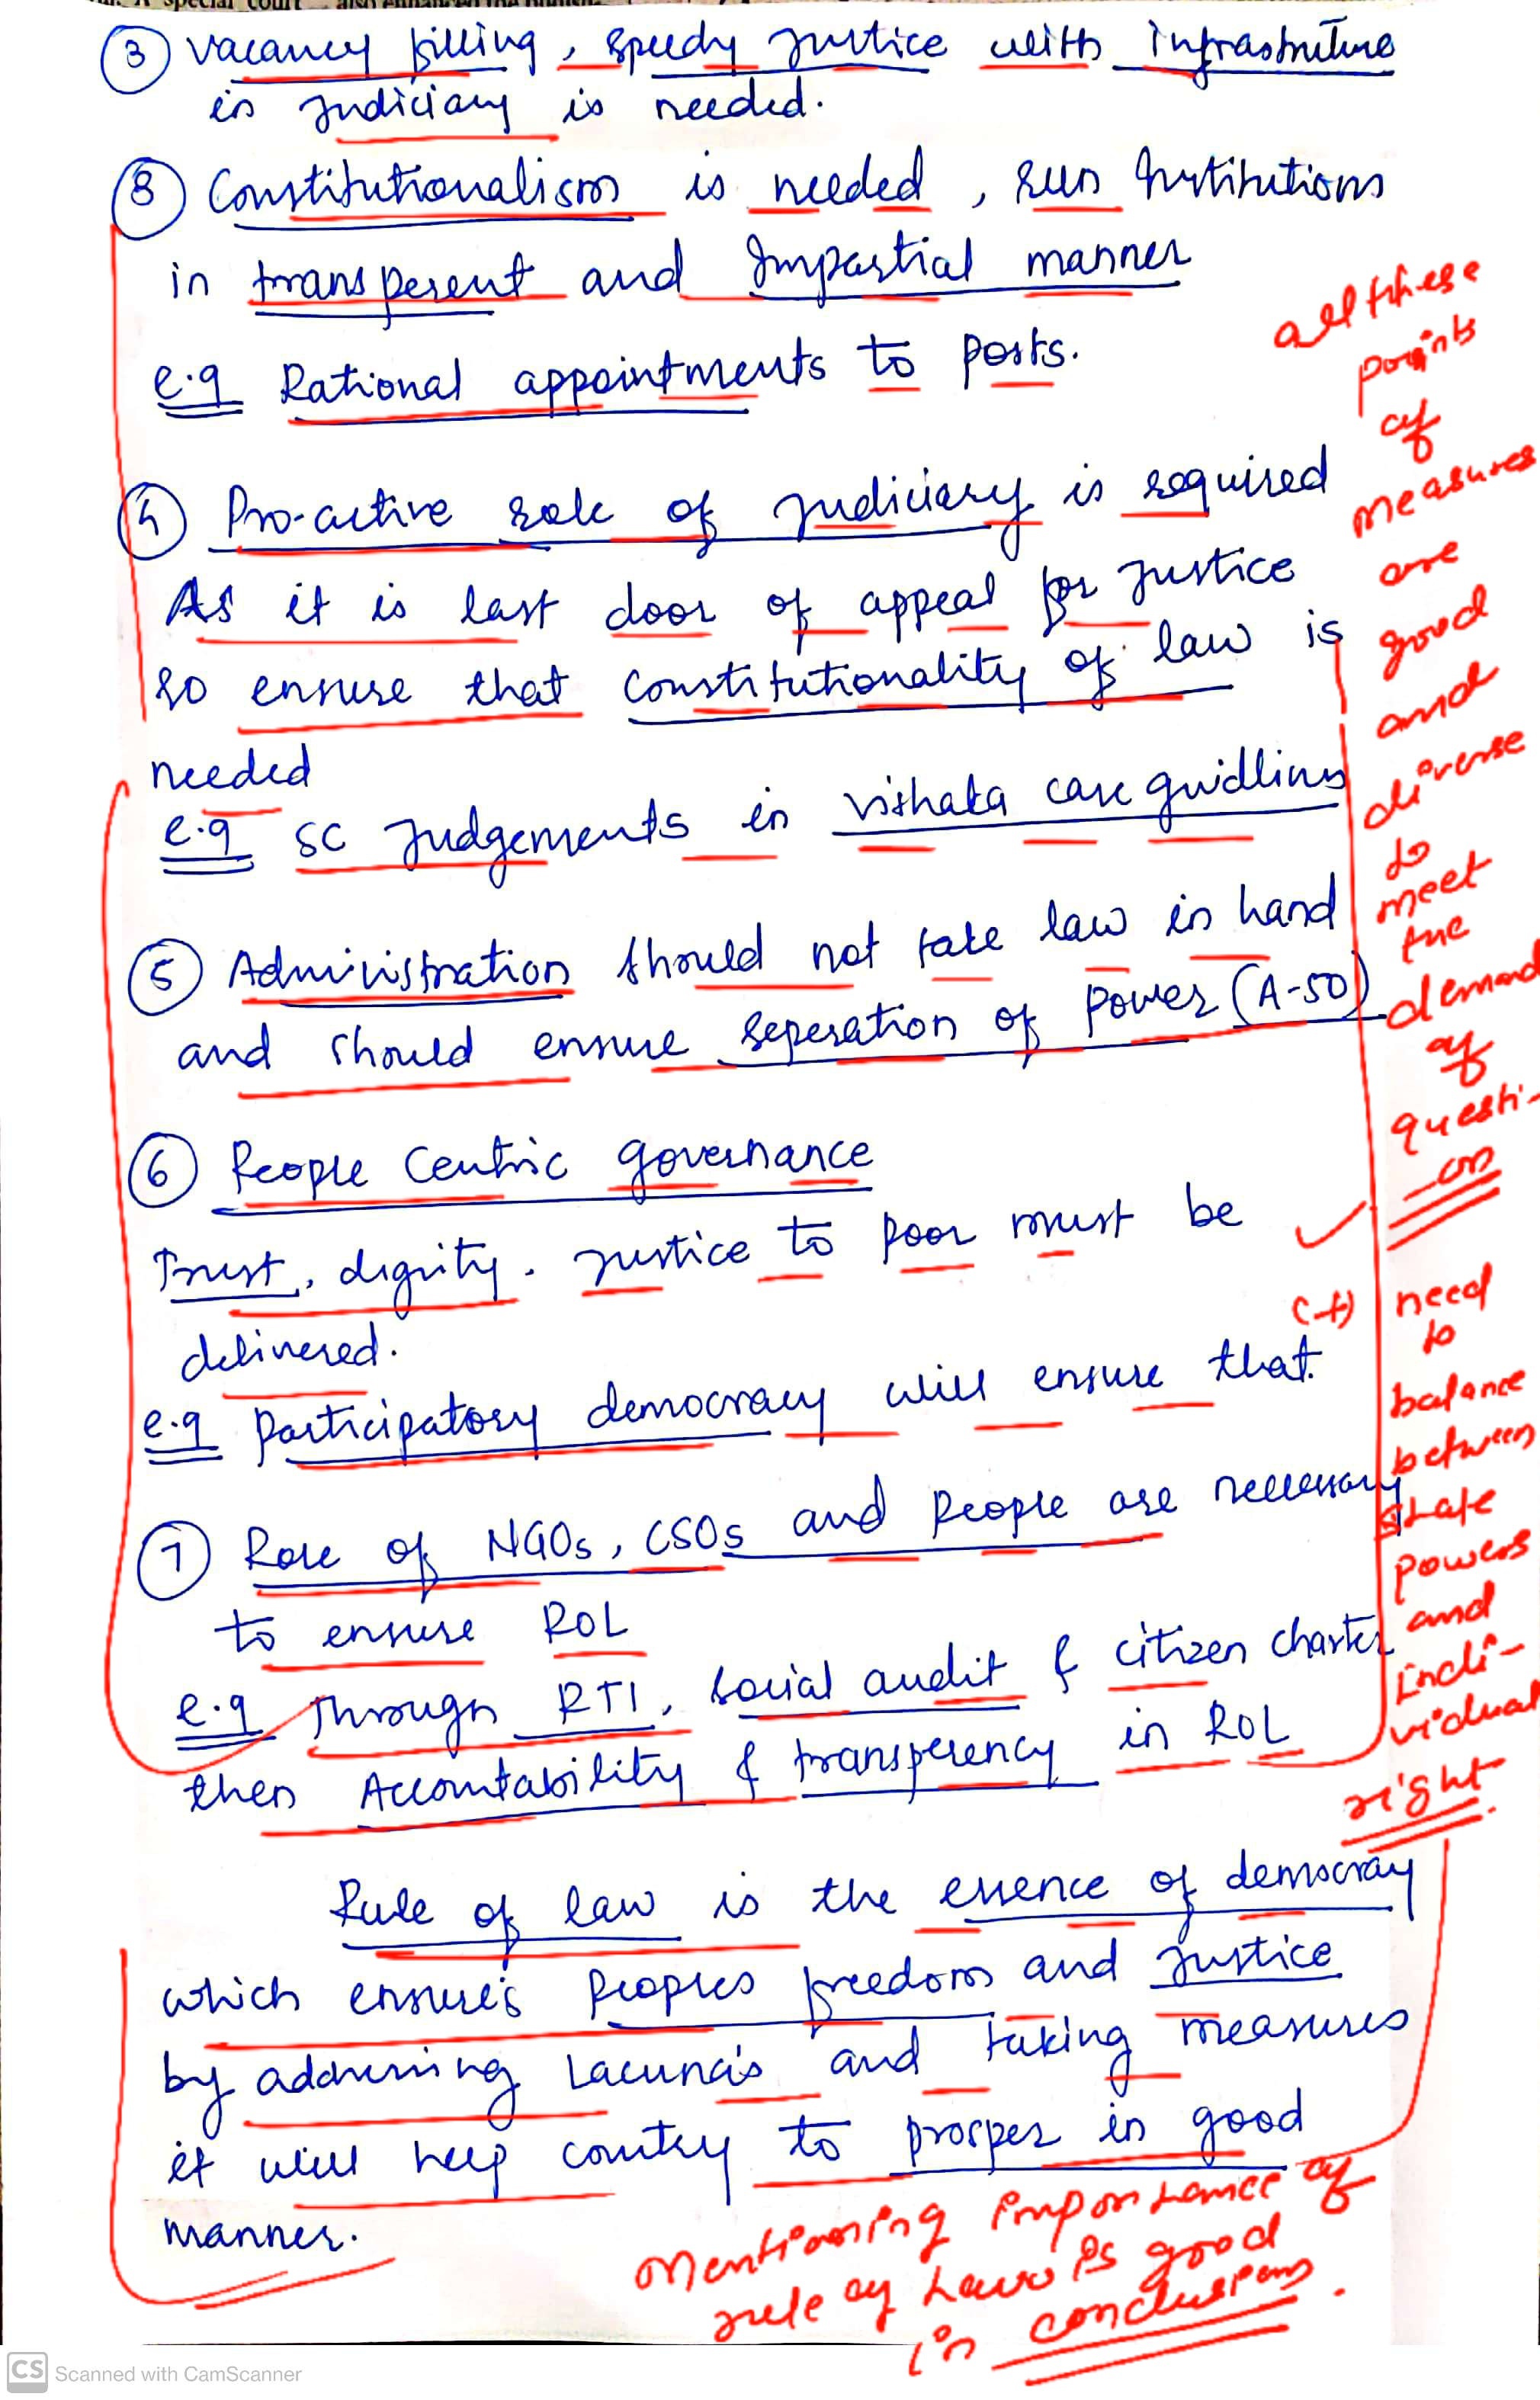 ③ vacancy filling, speedy justice with infrastruture
in judiciary is needed.
⑧ Constitutionalism is needed, run Institutions
in transperent and Impartial manner
e.g Rational appointments to posts.
④ Pro-active role of judiciary is required
As it is last door of appeal for justice
so ensure that constitutionality of law is
needed
e.g SC Judgements in vishaka case guidlines
⑤ Administration should not take law in hand
and should ensure seperation of power (A-50)
⑥ People Centric governance
Trust, dignity. justice to poor must be
delivered.
e.g Participatory democracy will ensure that.
⑦ Role of NGOs, CSOs and people are necessary
to ensure ROL
e.g Through RTI, social audit & citizen charter
then Accountability & transperency in ROL
Rule of law is the essence of democray
which ensures peoples freedom and justice
by addressing Lacuna's and taking measures
it will help country to prosper in good
manner.
all these
points
of
measures
are
good
and
diverse
to
meet
the
demand
of
questi-
-on
(+) need
to
balance
between
state
powers
and
indi-
vidual
right
Mentioning importance of
rule of Law is good
in conclusion.
CS Scanned with CamScanner